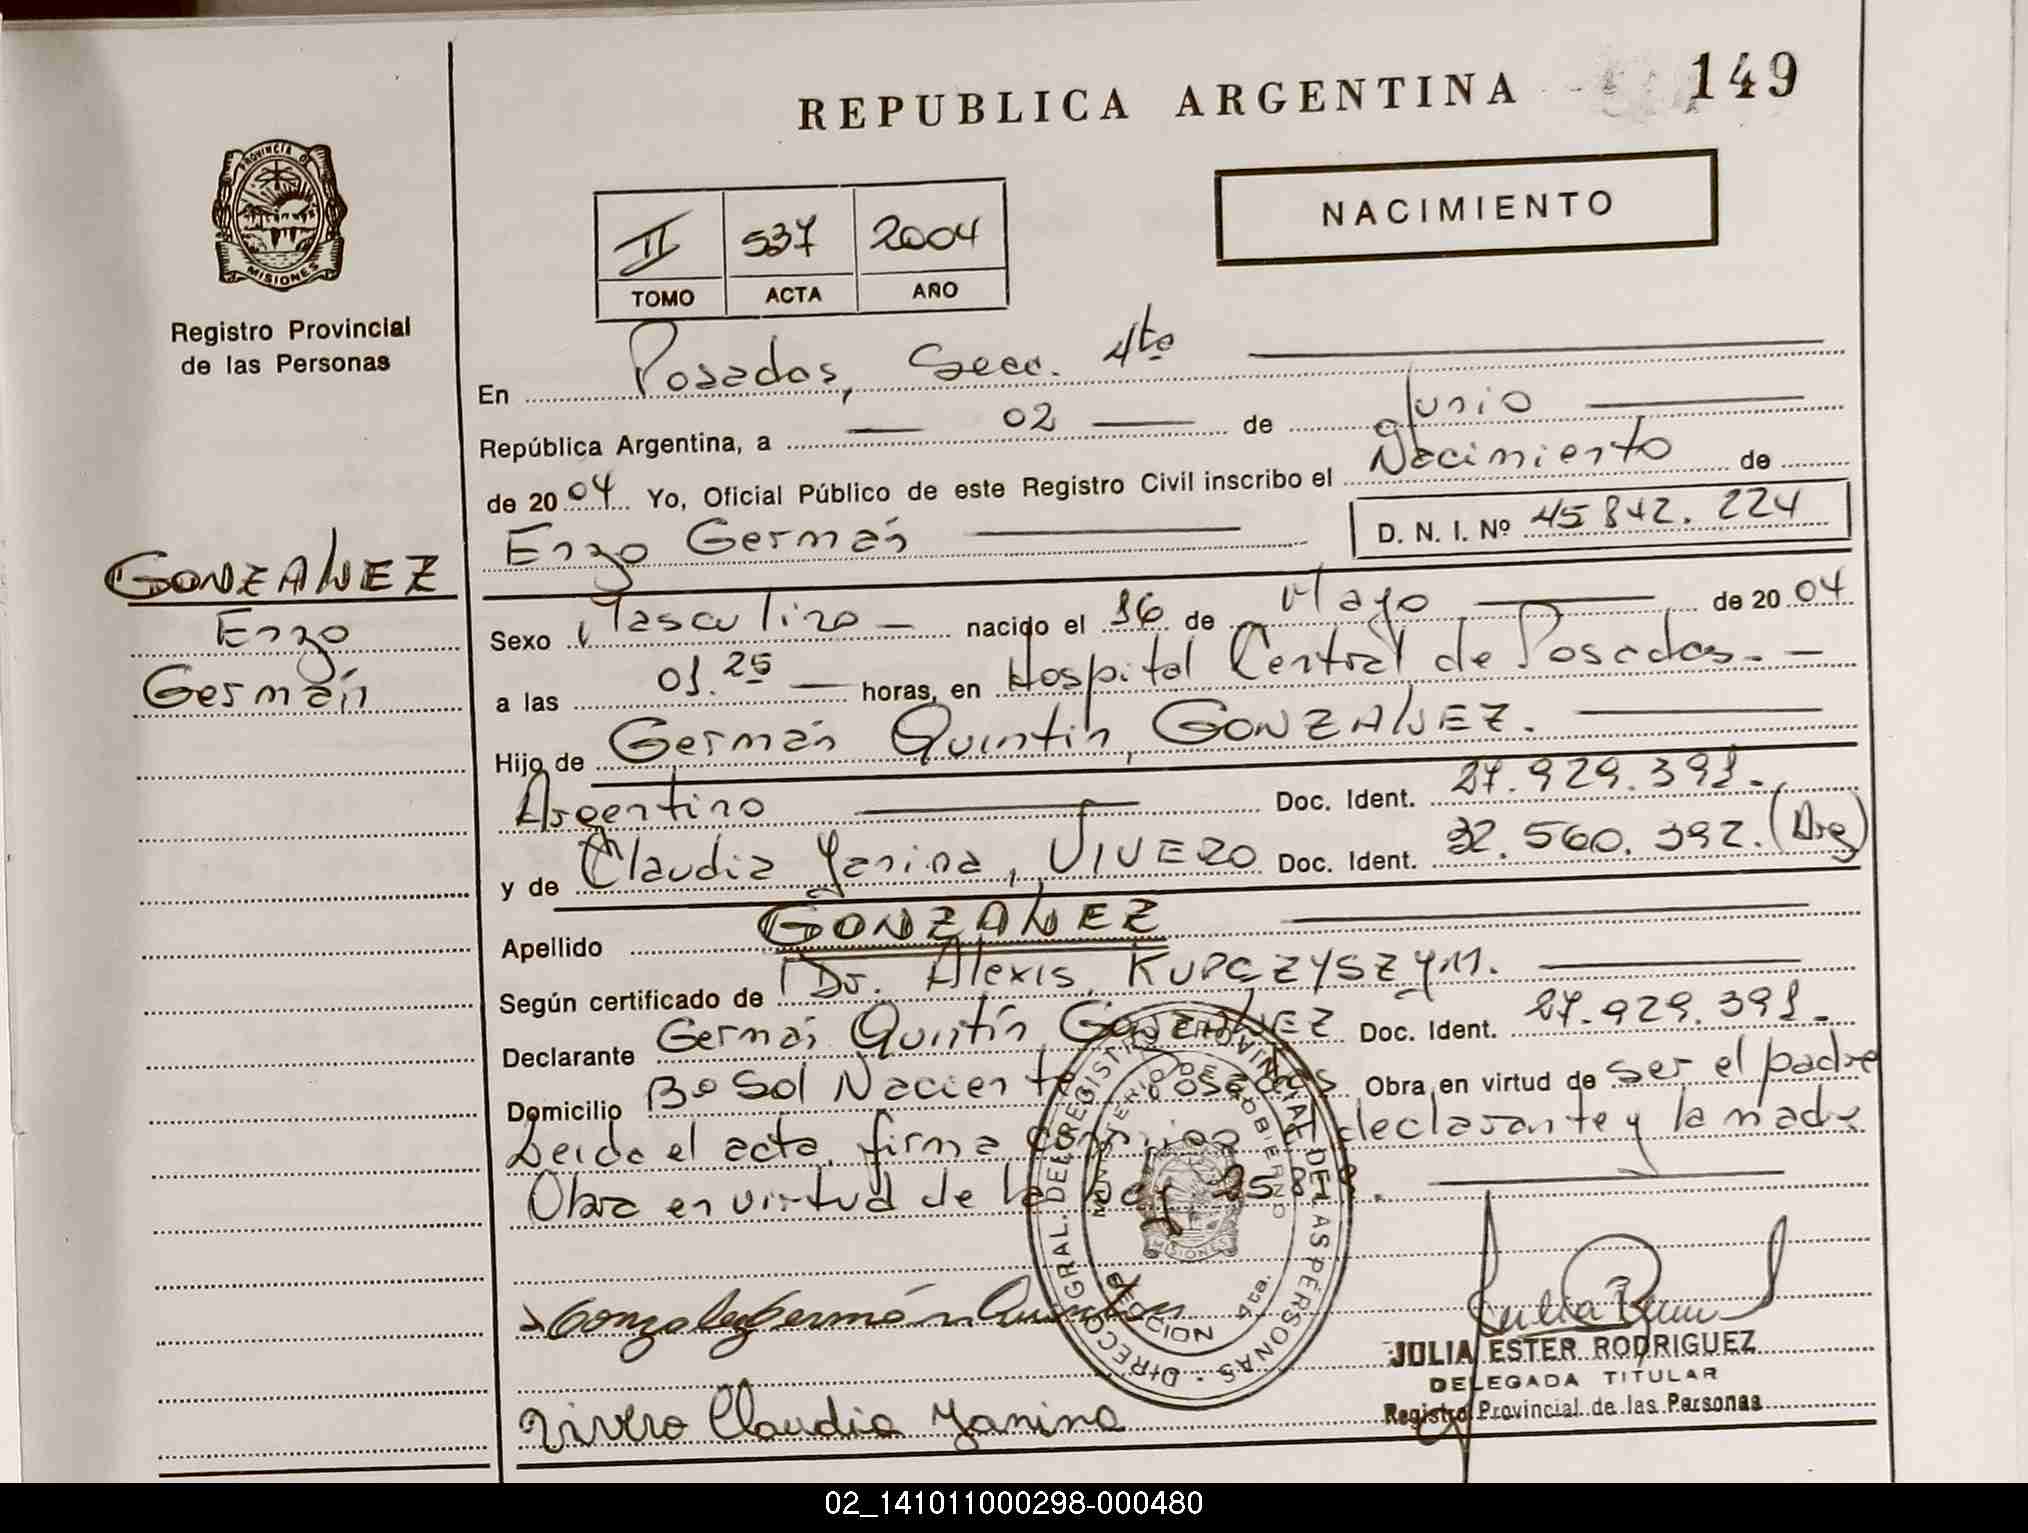 REPUBLICA ARGENTINA
149
PROVINCIA D
MISIONES
Registro Provincial
de las Personas
II 537 2004
TOMO ACTA AÑO
NACIMIENTO
En Posadas, Secc. 4ta
República Argentina, a 02 de Junio
de 2004 Yo, Oficial Público de este Registro Civil inscribo el Nacimiento de
Enzo Germán D. N. I. Nº 45 842. 224
GONZALVEZ
Enzo
Germán
Sexo Masculino nacido el 16 de Mayo de 2004
a las 01.25 horas, en Hospital Central de Posadas.
Hijo de Germán Quintín, GONZALVEZ.
Argentino Doc. Ident. 27.929.391.
y de Claudia Yanina, VIVERO Doc. Ident. 32.560.392. (Arg)
Apellido GONZALVEZ
Según certificado de Dr. Alexis KUPCZYSZYN.
Declarante Germán Quintín GONZALVEZ Doc. Ident. 27.929.391.
Domicilio Bº Sol Naciente Posadas Obra en virtud de ser el padre
Leida el acta, firma conmigo el declarante y la madre
Obra en virtud de la Ley
DIRECC. GRAL. DEL REGISTRO PROVINCIAL DE LAS PERSONAS
MINISTERIO DE GOBIERNO
MISIONES
SECCION 4ta.
Germán
JULIA ESTER RODRIGUEZ
DELEGADA TITULAR
Registro Provincial de las Personas
Vivero Claudia Yanina
02_141011000298-000480